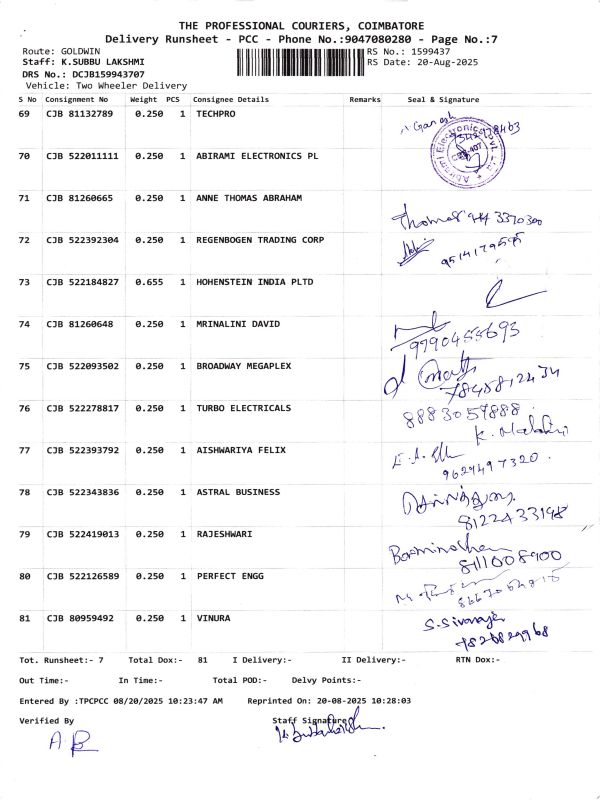 THE PROFESSIONAL COURIERS, COIMBATORE
Delivery Runsheet - PCC - Phone No.:9047080280 - Page No.:7
Route: GOLDWIN RS No.: 1599437
Staff: K.SUBBU LAKSHMI RS Date: 20-Aug-2025
DRS No.: DCJB159943707
Vehicle: Two Wheeler Delivery
S No Consignment No Weight PCS Consignee Details Remarks Seal & Signature
69 CJB 81132789 0.250 1 TECHPRO Ganesh
70 CJB 522011111 0.250 1 ABIRAMI ELECTRONICS PL
71 CJB 81260665 0.250 1 ANNE THOMAS ABRAHAM Thomas
72 CJB 522392304 0.250 1 REGENBOGEN TRADING CORP
73 CJB 522184827 0.655 1 HOHENSTEIN INDIA PLTD
74 CJB 81260648 0.250 1 MRINALINI DAVID
9790455693
75 CJB 522093502 0.250 1 BROADWAY MEGAPLEX
7845812434
76 CJB 522278817 0.250 1 TURBO ELECTRICALS 8883059888
77 CJB 522393792 0.250 1 AISHWARIYA FELIX
9629497320.
78 CJB 522343836 0.250 1 ASTRAL BUSINESS
8122433198
79 CJB 522419013 0.250 1 RAJESHWARI
8111008900
80 CJB 522126589 0.250 1 PERFECT ENGG
81 CJB 80959492 0.250 1 VINURA S.Sivaraja
Tot. Runsheet:- 7 Total Dox:- 81 I Delivery:- II Delivery:- RTN Dox:-
Out Time:- In Time:- Total POD:- Delvy Points:-
Entered By :TPCPCC 08/20/2025 10:23:47 AM Reprinted On: 20-08-2025 10:28:03
Verified By Staff Signature